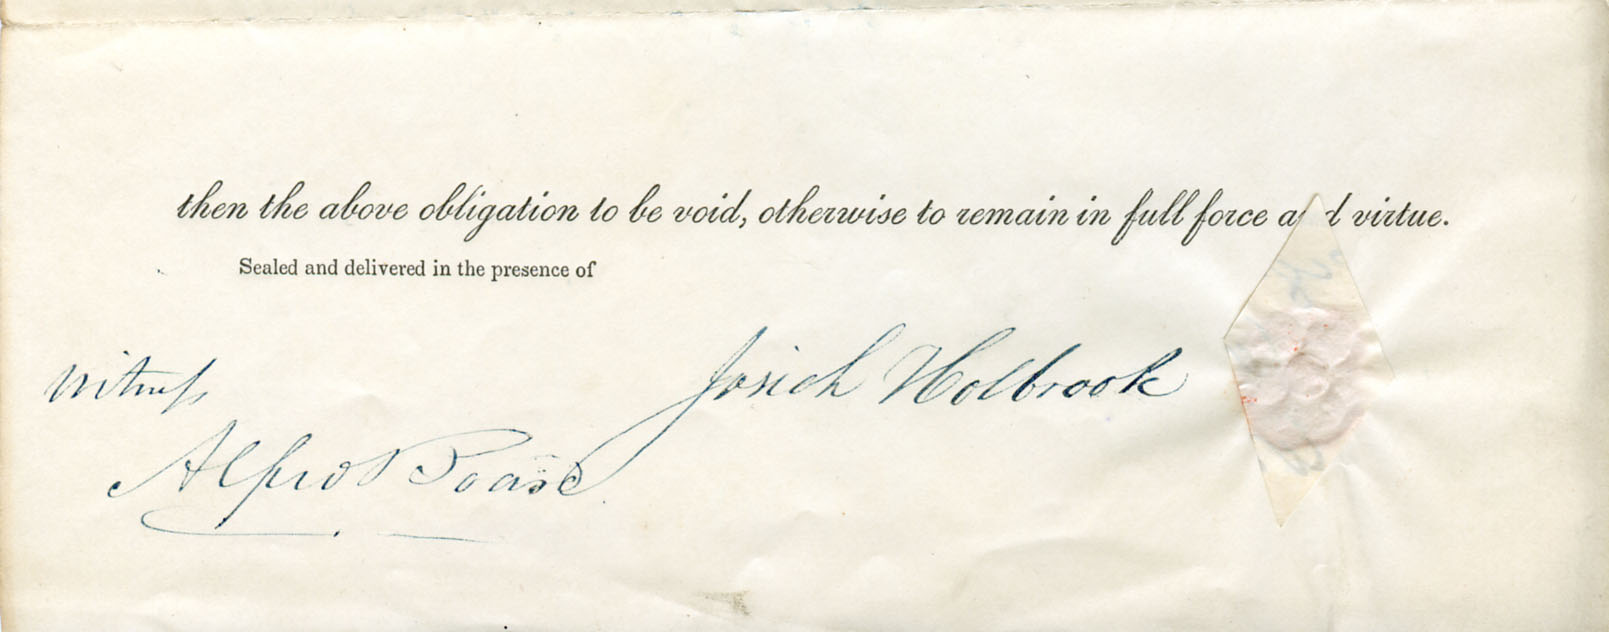 then the above obligation to be void, otherwise to remain in full force a d virtue.
Sealed and delivered in the presence of
Josiah Holbrook
Witness
Alfred